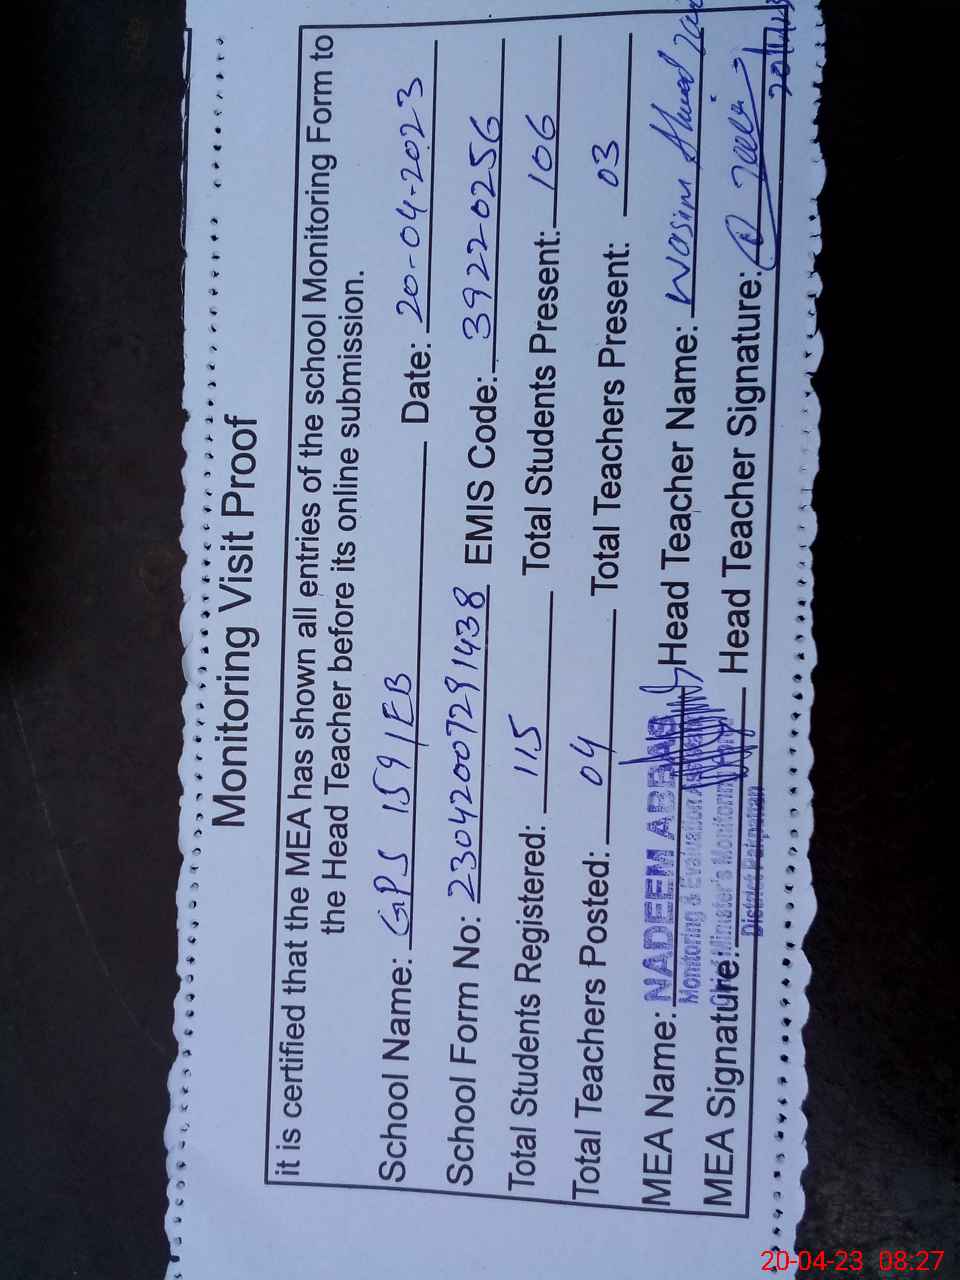 Monitoring Visit Proof
it is certified that the MEA has shown all entries of the school Monitoring Form to
the Head Teacher before its online submission.
School Name: GPS 159/EB Date: 20-04-2023
School Form No: 23042007291438 EMIS Code: 39220256
Total Students Registered: 115 Total Students Present: 106
Total Teachers Posted: 04 Total Teachers Present: 03
MEA Name: NADEEM ABBAS Head Teacher Name: Wasim Ahmad
Monitoring & Evaluation
MEA Signature: Head Teacher Signature:
Chief Minister's Monitoring
District Pakpattan
20-04-23 08:27